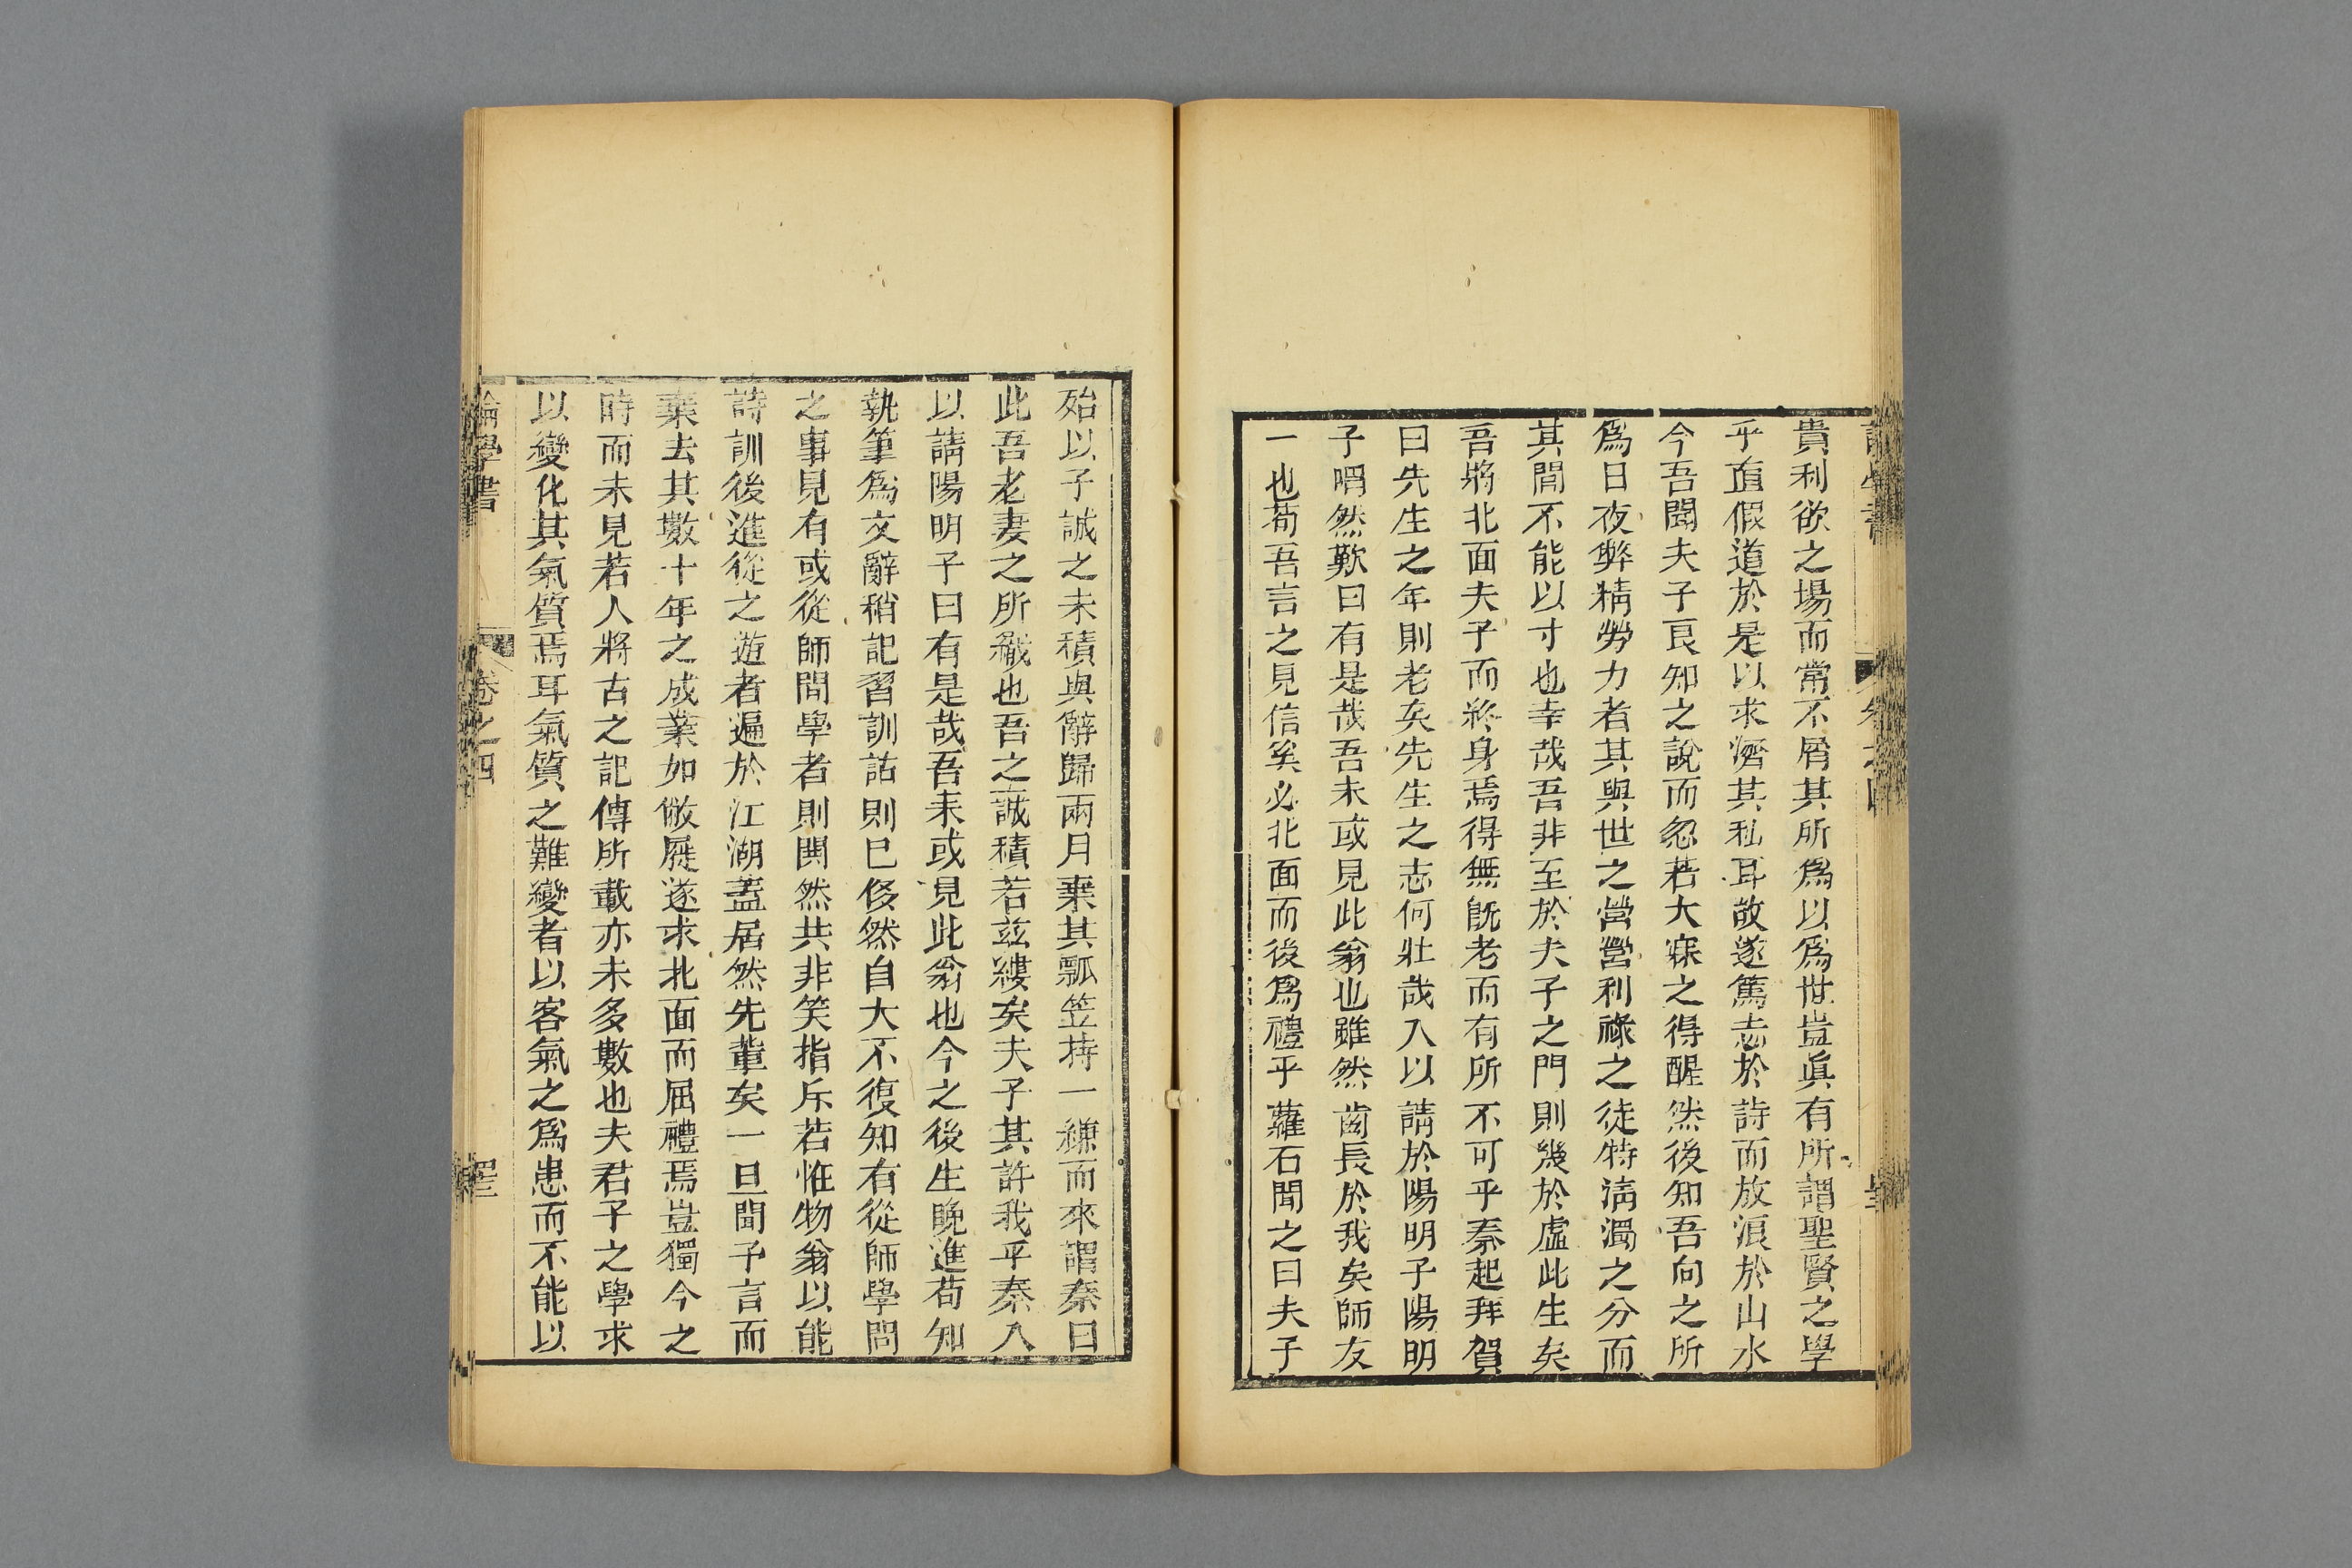 貴利欲之場而常不屑其所爲以爲世豈眞有所謂聖賢之學
乎直假道於是以求濟其私耳故遂篤志於詩而放浪於山水
今吾聞夫子良知之說而忽若大寐之得醒然後知吾向之所
爲日夜弊精勞力者其與世之營營利祿之徒特淸濁之分而
其閒不能以寸也幸哉吾非至於夫子之門則幾於虛此生矣
吾將北面夫子而終身焉得無旣老而有所不可乎秦起拜賀
曰先生之年則老矣先生之志何壯哉入以請於陽明子陽明
子喟然歎曰有是哉吾未或見此翁也雖然齒長於我矣師友
一也苟吾言之見信奚必北面而後爲禮乎蘿石聞之曰夫子
殆以子誠之未積與辭歸兩月棄其瓢笠持一縑而來謂秦曰
此吾老妻之所織也吾之誠積若茲縷矣夫子其許我乎秦入
以請陽明子曰有是哉吾未或見此翁也今之後生晚進苟知
執筆爲文辭稍記習訓詁則已侈然自大不復知有從師學問
之事見有或從師問學者則閧然共非笑指斥若怪物翁以能
詩訓後進從之遊者遍於江湖蓋居然先輩矣一旦聞予言而
棄去其數十年之成業如敝屣遂求北面而屈禮焉豈獨今之
時而未見若人將古之記傳所載亦未多數也夫君子之學求
以變化其氣質焉耳氣質之難變者以客氣之爲患而不能以
論學書
卷之四